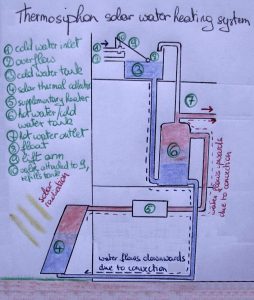 Thermosiphon solar water heating system
① cold water inlet
② overflow
③ cold water tank
④ solar thermal collector
⑤ supplimentary heater
⑥ hot water/cold
water tank
⑦ hot water outlet
⑧ float
⑨ lift arm
⑩ valve attached to 9,
refills tank
③
⑦
⑥
solar
radiation
⑤
④
water flows upwards
due to convection
water flows downwards
due to convection